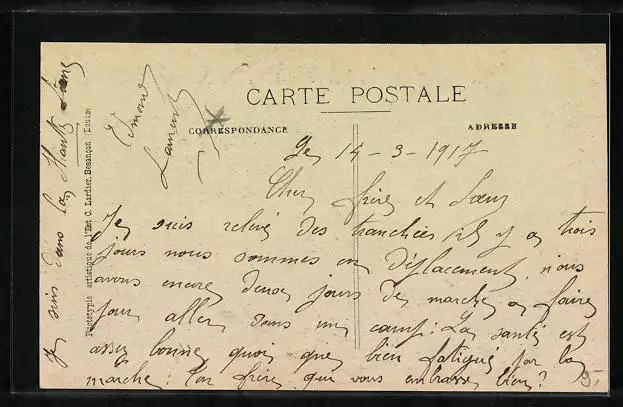 CARTE POSTALE
CORRESPONDANCE
ADRESSE
Le 14-3-1917
Cher frère et Sœur
Je suis relevé des tranchées il y a trois
jours nous sommes en déplacement nous
avons encore deux jours de marche a faire
pour aller dans un camp: La santé est
assez bonne quoi que bien fatigué par la
marche: Ton frère qui vous embrasse bien
Edmond
Je suis dans la Haute
Phototypie artistique de l'Est C. Lardier, Besançon (Doubs)